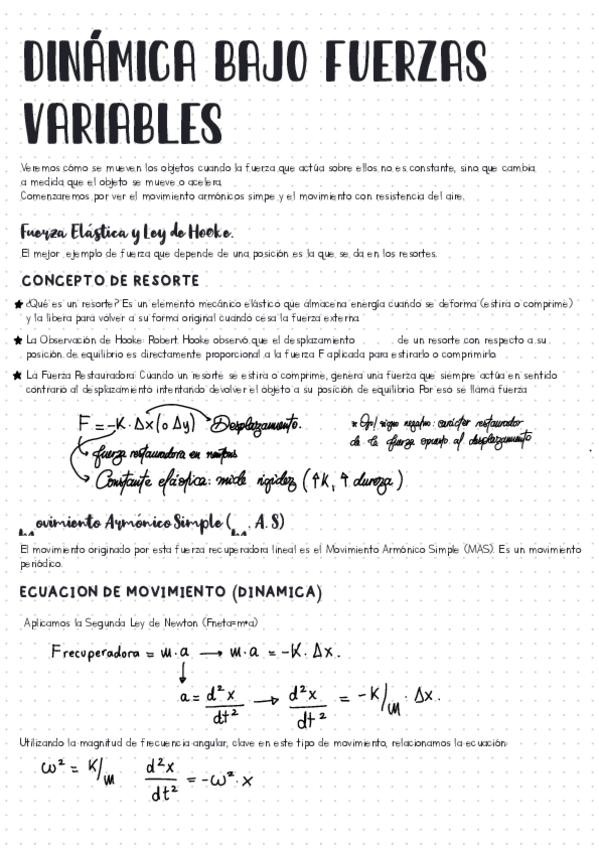 DINÁMICA BAJO FUERZAS
VARIABLES
Veremos cómo se mueven los objetos cuando la fuerza que actúa sobre ellos no es constante, sino que cambia
a medida que el objeto se mueve o acelera.
Comenzaremos por ver el movimiento armónicos simpe y el movimiento con resistencia del aire.
Fuerza Elástica y Ley de Hooke.
El mejor ejemplo de fuerza que depende de una posición es la que se da en los resortes.
CONCEPTO DE RESORTE
★ ¿Qué es un resorte? Es un elemento mecánico elástico que almacena energía cuando se deforma (estira o comprime)
y la libera para volver a su forma original cuando cesa la fuerza externa.
★ La Observación de Hooke: Robert Hooke observó que el desplazamiento de un resorte con respecto a su
posición de equilibrio es directamente proporcional a la fuerza F aplicada para estirarlo o comprimirlo.
★ La Fuerza Restauradora: Cuando un resorte se estira o comprime, genera una fuerza que siempre actúa en sentido
contrario al desplazamiento intentando devolver el objeto a su posición de equilibrio. Por eso se llama fuerza
F = -K · Δx (o Δy) Desplazamiento.
* Ojo! signo negativo: carácter restaurador
de la fuerza opuesto al desplazamiento
fuerza restauradora en newtons
Constante elástica: mide rigidez (↑K, ↑ dureza)
ovimiento Armónico Simple ( . A. S)
El movimiento originado por esta fuerza recuperadora lineal es el Movimiento Armónico Simple (MAS). Es un movimiento
periódico.
ECUACION DE MOVIMIENTO (DINAMICA)
Aplicamos la Segunda Ley de Newton (Fneta=m*a)
F recuperadora = m · a → m · a = -K · Δx.
a = d²x/dt² → d²x/dt² = -K/m · Δx.
Utilizando la magnitud de frecuencia angular, clave en este tipo de movimiento, relacionamos la ecuación:
ω² = K/m d²x/dt² = -ω² · x